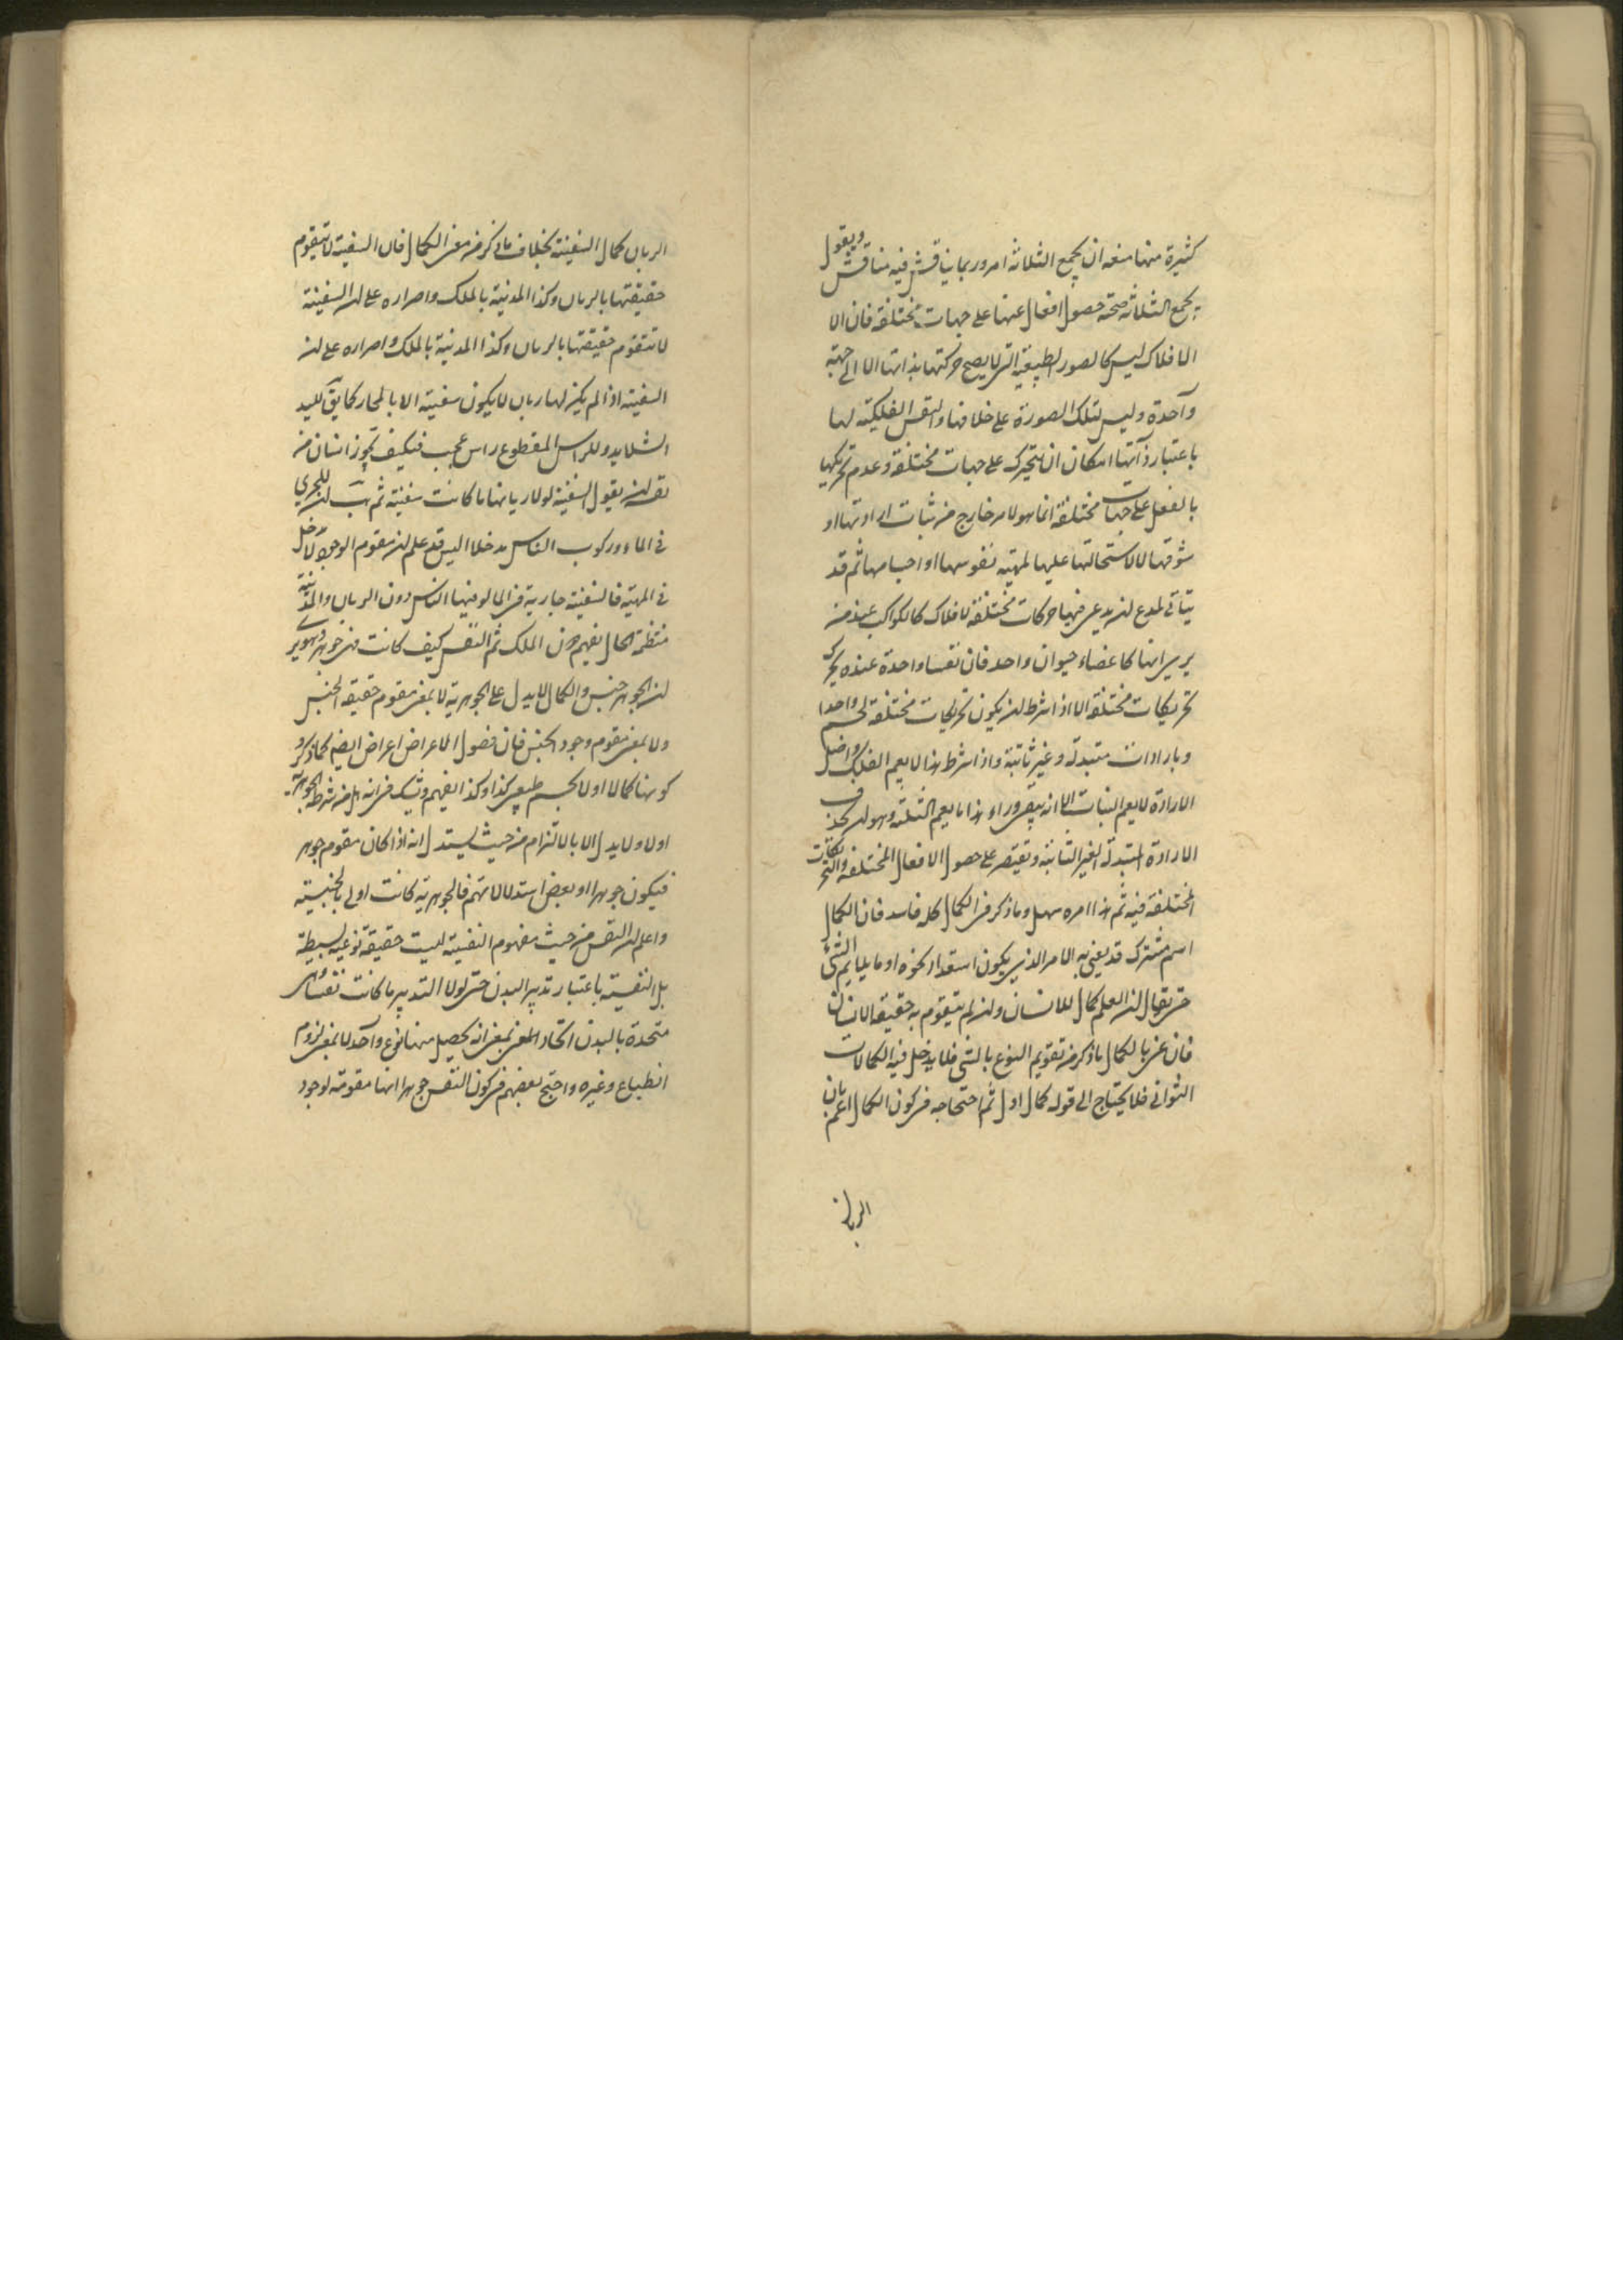 كثيرة منها منعه ان يجمع الثلاثة امر وربما يناقش فيه مناقش ويقول
يجمع الثلاثة صحة حصول افعال عنها على جهات مختلفة فان الا
الافلاك ليس كالصور الطبيعية التى لا يصح حركتها بذاتها الا الى جهة
واحدة وليس لتلك الصورة على خلافها والنفس الفلكية لها
باعتبار ذاتها امكان ان يتحرك على جهات مختلفة وعدم تحريكها
بالفعل على جهات مختلفة انما هو لامر خارج من ثبات ارادتها او
شوقها لا لاستحالتها عليها لمهية نفوسها او اجسامها ثم قد
يتأتى لمدع ان يدعى فيها حركات مختلفة لافلاك كالكواكب عند من
يرى انها كاعضاء حيوان واحد فان نفسا واحدة عنده يحرك
تحريكات مختلفة الا اذا شرط ان يكون تحريكات مختلفة لجسم واحد
وبارادات متبدلة وغير ثابتة واذا شرط هذا لا يعم الفلك واخذ
الارادة لا يعم النبات الا انه يبقى وراء هذا ما يعم الثلثة وهو ان يحذف
الارادة المتبدلة الغير الثابتة ويقتصر على حصول الافعال المختلفة والتحريكات
المختلفة فيه ثم هذا امره سهل وما ذكر فى الكمال كله فاسد فان الكمال
اسم مشترك قد يعنى به الامر الذى يكون استعداد نحوه او ما يلايم الشئ
حتى يقال ان العلم كمال للانسان وان لم يتقوم به حقيقة الانسان
فان عنى بالكمال ما ذكر من تقويم النوع بالشى فلا يدخل فيه الكمالات
الثوانى فلا يحتاج الى قوله كمال اول ثم احتجاجه فى كون الكمال اعم بان
الربان
الربان كمال السفينة بخلاف ما ذكر من معنى الكمال فان السفينة لا يتقوم
حقيقتها بالربان وكذا المدنية بالملك واصراره على ان السفينة
لا تتقوم حقيقتها بالربان وكذا المدنية بالملك واصراره على ان
السفينة اذا لم يكن لها ربان لا يكون سفينة الا بالمجاز كما يق لليد
الشلا يد وللراس المقطوع راس عجيب فكيف يجوز انسان من
نفسه ان يقول السفينة لولا ربانها ما كانت سفينة ثم هب ان للجرى
فى الماء وركوب الناس مدخلا اليس قد علم ان مقوم الوجود لا يدخل
فى المهية فالسفينة جارية فى الماء وفيها الناس دون الربان والمدنية
منتظمة الحال بغيرهم دون الملك ثم النفس كيف كانت فهى جوهر وهو يرى
ان الجوهر جنس والكمال لا يدل على الجوهرية لا بمعنى مقوم حقيقة الجنس
ولا بمعنى مقوم وجود الجنس فان فصول الاعراض اعراض ايضه كما ذكر و
كونها كمالا اولا لجسم طبيعى كذا وكذا يفهم ويشك فى انه هل من شرط الجوهرية
اولا ولا يدل الا بالالتزام من حيث يستدل انه اذا كان مقوم جوهر
فيكون جوهرا او ببعض استدلالاتهم فالجوهرية كانت اولى بالجنسية
واعلم ان النفس من حيث مفهوم النفسية ليست حقيقة نوعية بسيطة
بل النفسية باعتبار تدبير البدن حتى لولا التدبير ما كانت نفسا وهى
متحدة بالبدن اتحاد المعنى بمعنى انه يحصل منها نوع واحد لا بمعنى لزوم
انطباع وغيره واحتج بعضهم فى كون النفس جوهرا انها مقومة لوجود